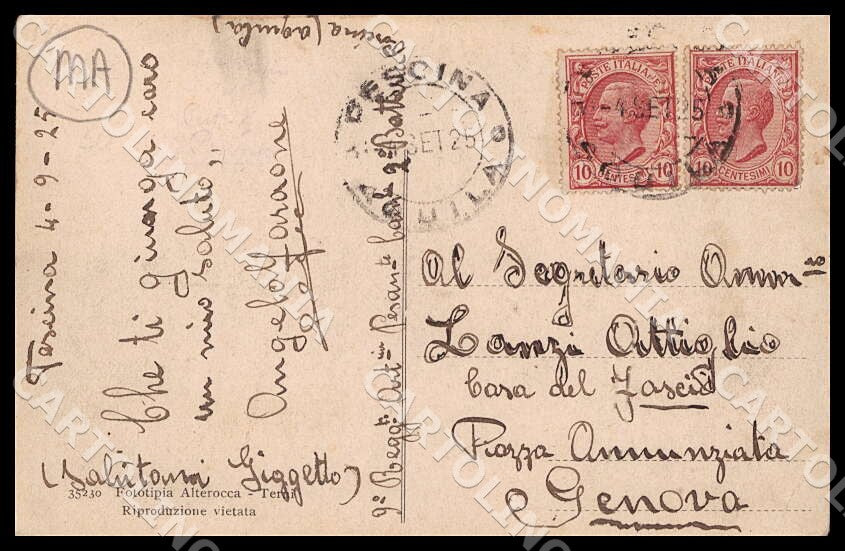 MA
Pescina 4-9-25
Che ti giunga caro
un mio saluto,,
Angelo Faraone
(Salutami Giggetto)
35230 Fototipia Alterocca - Terni
Riproduzione vietata
9º Regg.to Art.ia Pesante Camp. 2ª Batteria Pescina (Aquila)
PESCINA
AQUILA
4 SET 25
POSTE ITALIANE
10 CENTESIMI 10
POSTE ITALIANE
10 CENTESIMI 10
-4 SET 25
Al Segretario Amm.ro
Lanzi Attiglio
Casa del Fascio
Piazza Annunziata
Genova
CARTOLINOMANIA